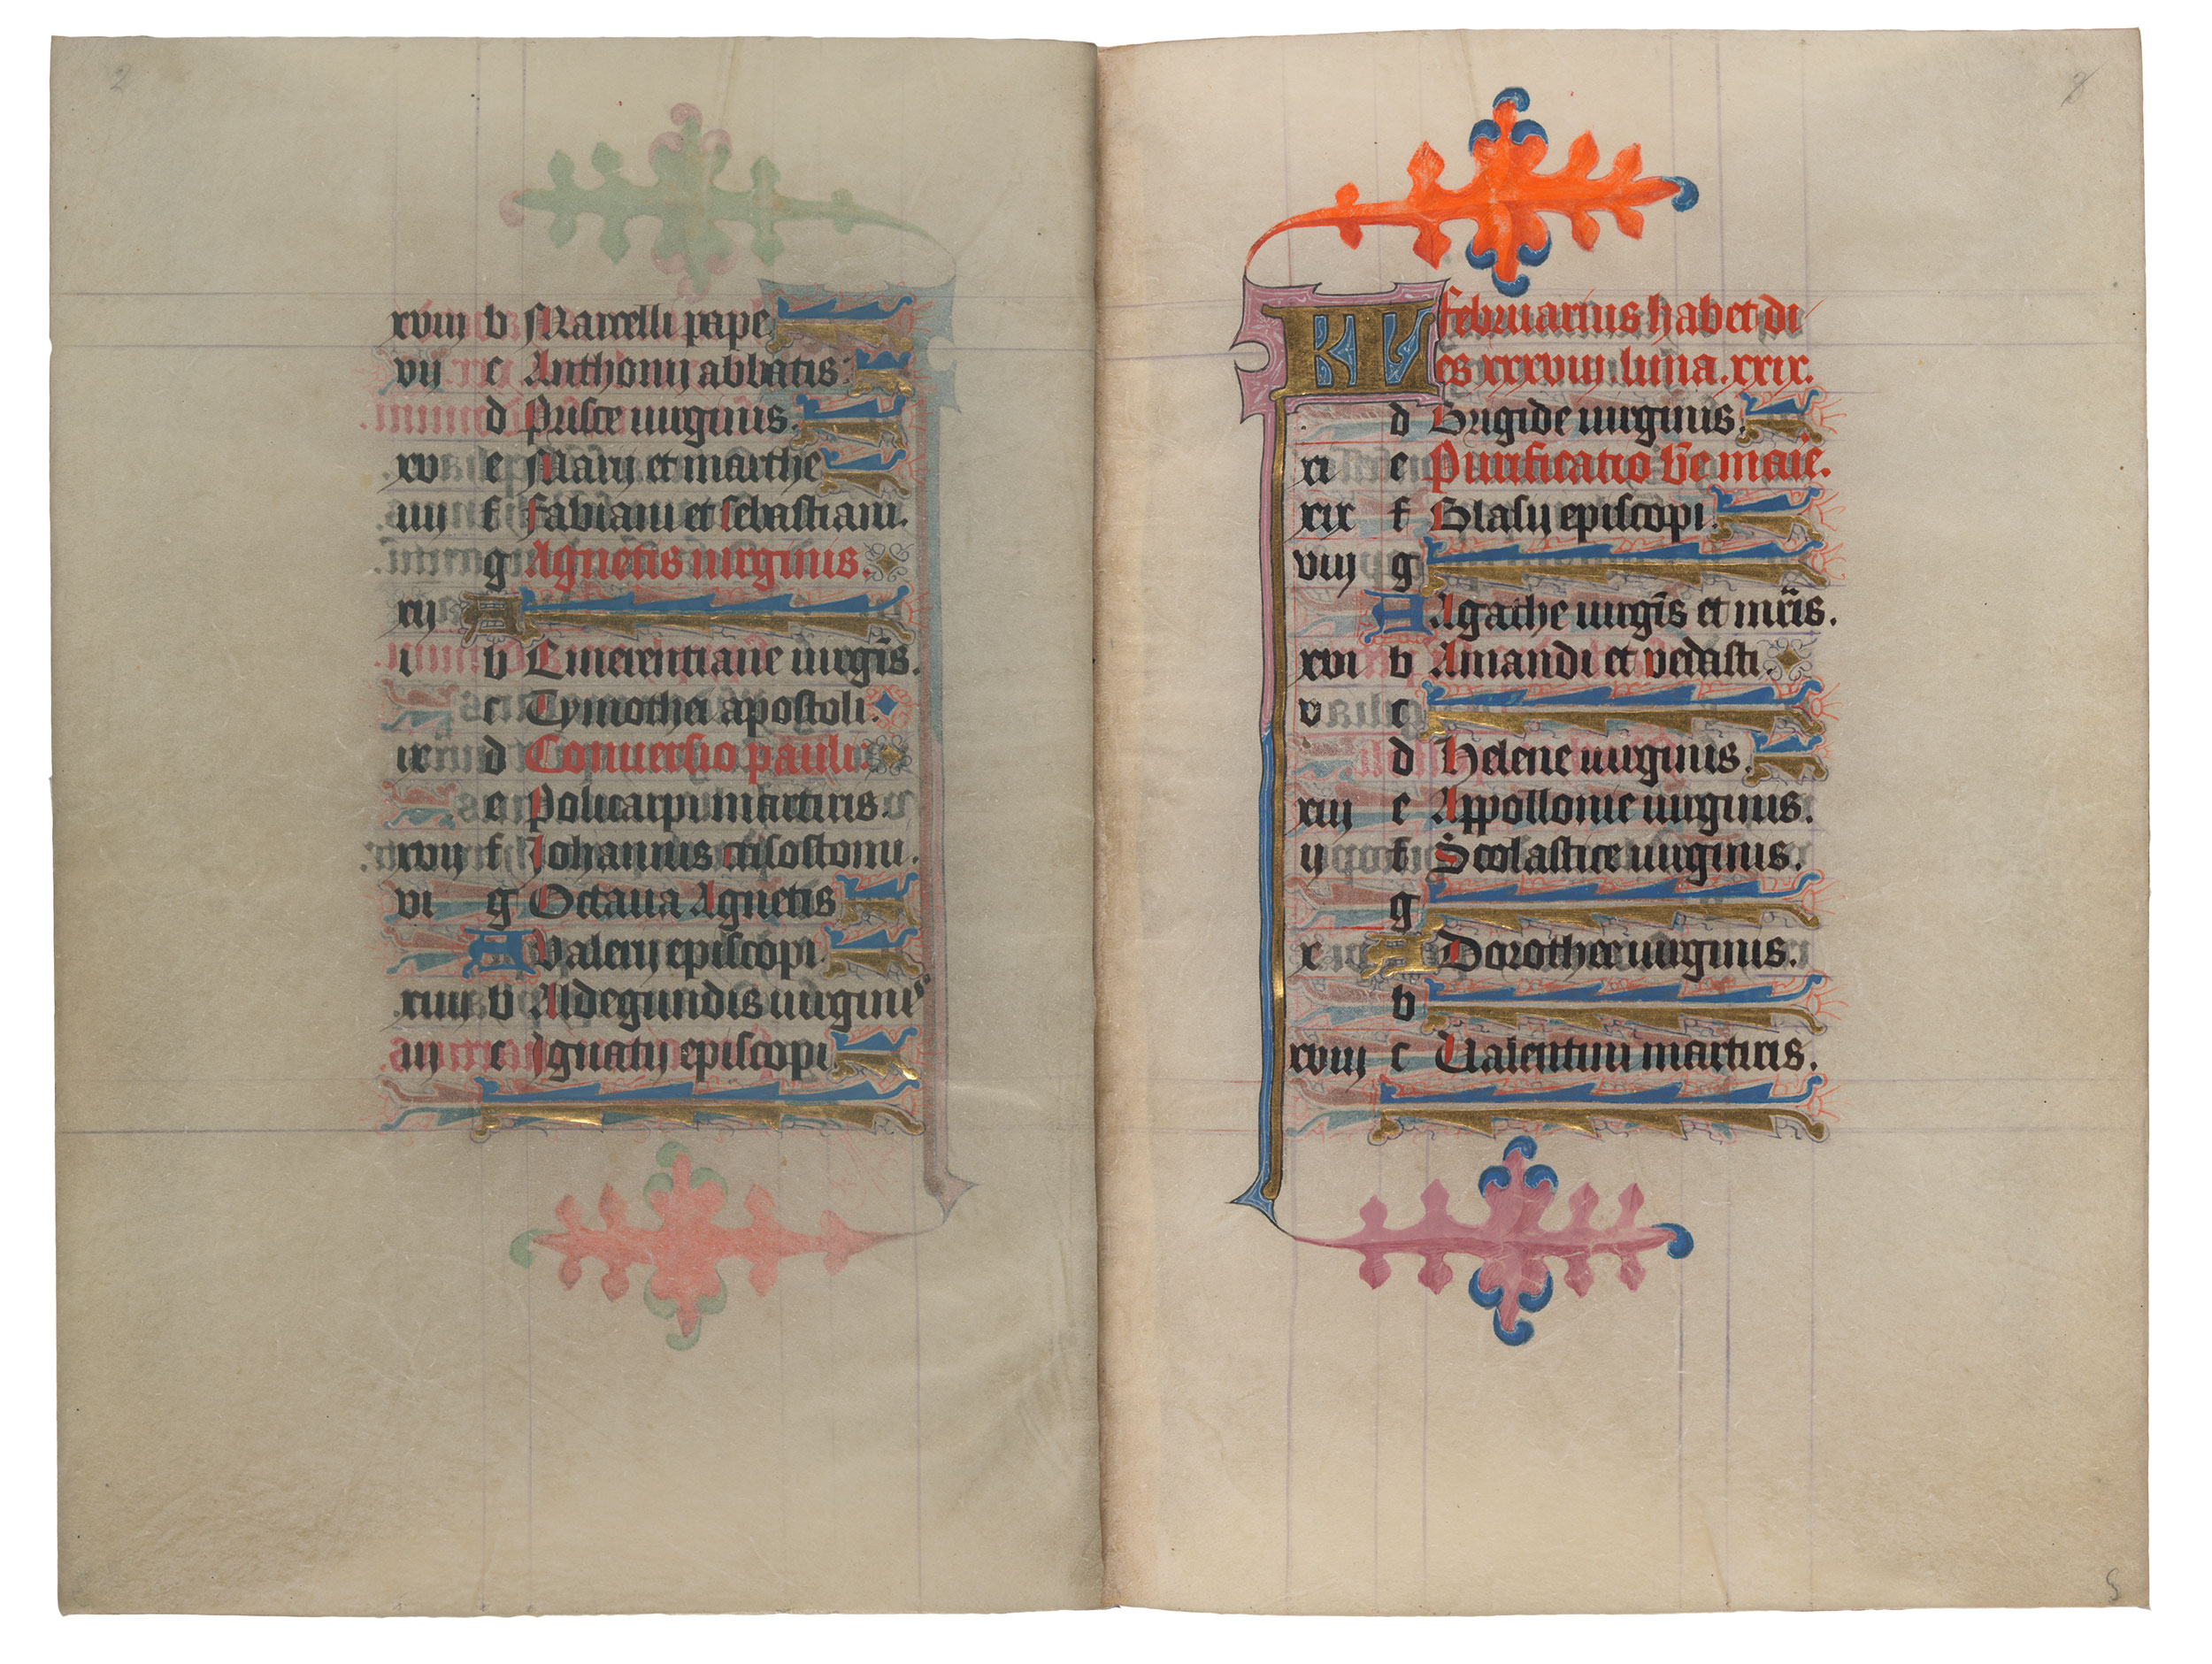 2
xviii b Marcelli pape
vii c Anthonii abbatis:
d Prisce uirginis.
xv e Marii et marthe
iiii f Fabiani et sebastiani.
g Agnetis uirginis.
xii A
i b Emerentiane uirgīs.
c Tymothei apostoli.
ix d Conuersio pauli:
e Policarpi martiris.
xvii f Johannis crisostomi.
vi g Octaua Agnetis
A Valerii episcopi.
xiiii b Aldegundis uirginis
iii c Ignatii episcopi
KL Februarius habet di
es xxxviii. luna. xxix.
d Brigide uirginis.
xi e Purificatio be marie.
xix f Blasii episcopi.
viii g
A Agathe uirgīs et mr̄is.
xvi b Amandi et vedasti.
v c
d Helene uirginis.
xiii e Appollonie uirginis.
ii f Scolastice uirginis.
g
x A Dorothee uirginis.
b
xviii c Ualentini martiris.